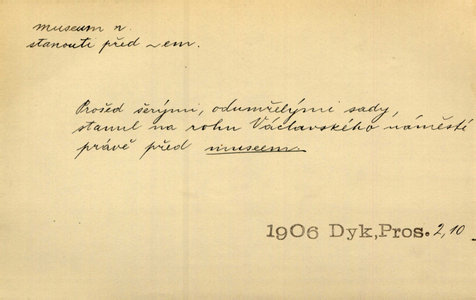 museum n.
stanouti před ~em.
Prošed šerými, odumřelými sady,
stanul na rohu Václavského náměstí
právě před museem.
1906 Dyk, Pros. 2, 10